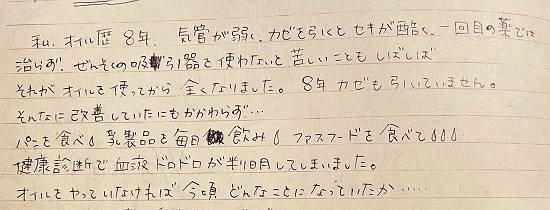 私、オイル歴 8年、気管が弱く、カゼを引くとセキが酷く、一回目の薬では
治らず、ぜんそくの吸引器を使わないと苦しいこともしばしば
それがオイルを使ってから全くなりました。8年カゼも引いていません。
そんなに改善していたにもかかわらず…
パンを食べ 乳製品を毎日飲み ファスフードを食べて
健康診断で血液ドロドロが判明してしまいました。
オイルをやっていなければ今頃どんなことになっていたか……